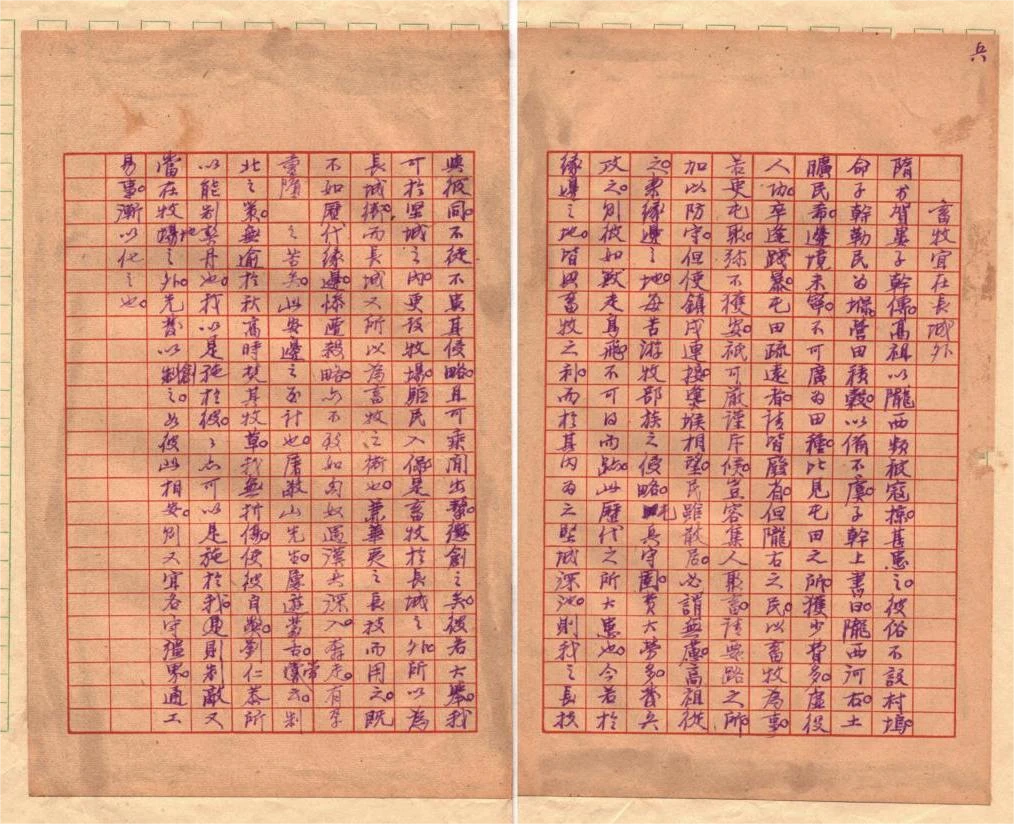 兵
畜牧宜在長城外
隋書賀婁子幹傳。高祖以隴西頻被寇掠。甚患之。彼俗不設村塢
命子幹勒民為堡。營田積穀。以備不虞。子幹上書曰。隴西河右。土
曠民希。邊境未寧。不可廣為田種。比見屯田之所。獲少費多。虛役
人功。卒逢踐暴。屯田疏遠者。請皆廢省。但隴右之民。以畜牧為事。
若更屯聚。彌不獲安。祇可嚴謹斥候。豈容集人聚畜。請要路之所。
加以防守。但使鎮戍連接。烽堠相望。民雖散居。必謂無慮。高祖從
之。案緣邊之地。每苦游牧部族之侵略。屯兵守圉。費大勞多。發兵
攻之。則彼如獸走鳥飛。不可得而跡。此歷代之所大患也。今若於
緣邊之地。皆興畜牧之利。而於其內為之堅城深池。則我之長技
與彼同。不徒不患其侵略。且可乘間出擊懲創之矣。彼若大舉。我
可於堅城之內。更設牧場。驅民入保。是畜牧於長城之外。所以為
長城衛。而長城又所以為畜牧之衛也。兼華夷之長技而用之。既
不如歷代緣邊。慘遭殺略。亦不致如匈奴遇漢兵深入。奔走。有孕
重墮 之苦矣。此安邊之至計也。屠敬山先生。屢遊蒙古。嘗云。制
北之策。無逾於秋高時焚其牧草。我無折傷。使彼自斃。劉仁恭所
以能制契丹也。我以是施於彼。彼亦可以是施於我。則制敵又
當在牧場之外。先發以制之。如彼此相安。則又宜各守疆界。通工
易事。漸以化之也。